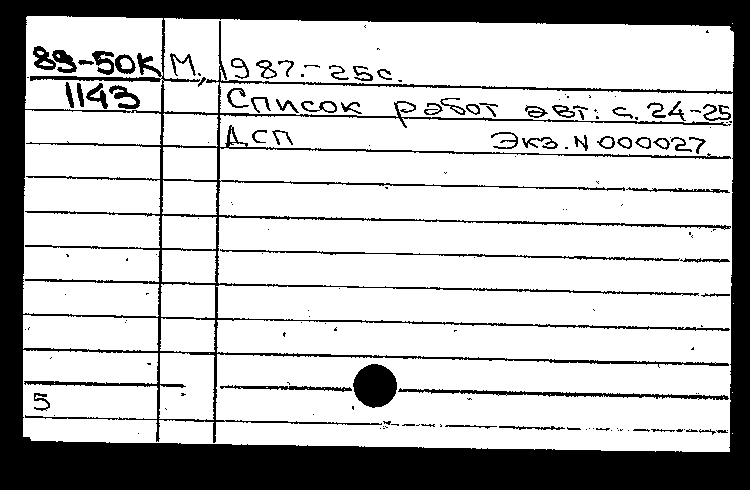 89-50К М., 1987.-25с.
1143 Список работ авт: с. 24-25
ДСП Экз. N 000027.
5